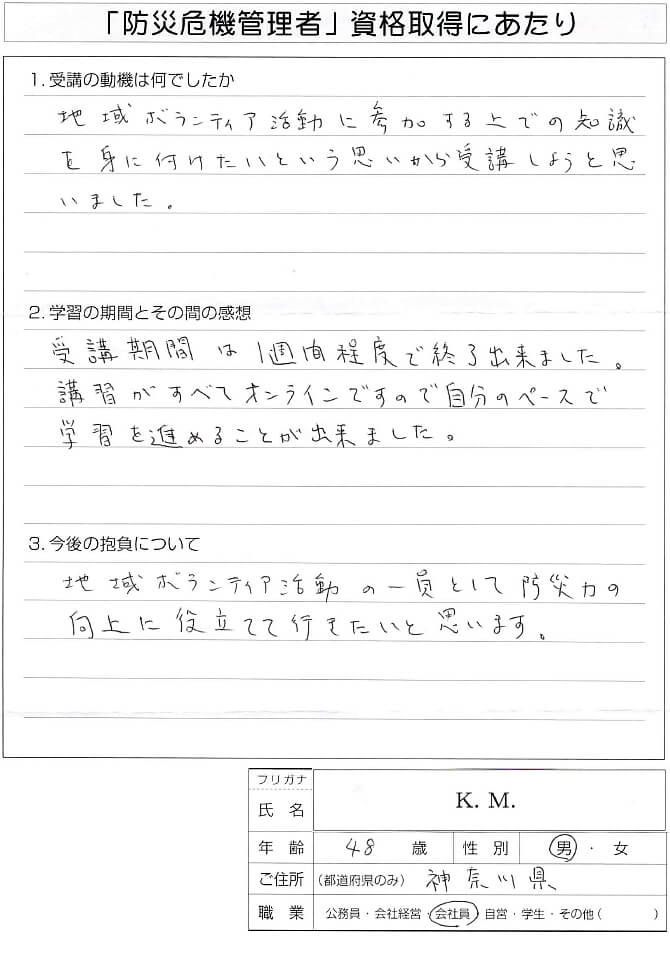 「防災危機管理者」資格取得にあたり
1.受講の動機は何でしたか
地域ボランティア活動に参加する上での知識
を身に付けたいという思いから受講しようと思
いました。
2.学習の期間とその間の感想
受講期間は1週間程度で終了出来ました。
講習がすべてオンラインですので自分のペースで
学習を進めることが出来ました。
3.今後の抱負について
地域ボランティア活動の一員として防災力の
向上に役立てて行きたいと思います。
フリガナ
氏名 K. M.
年齢 48 歳 性別 男・女
ご住所 (都道府県のみ) 神奈川県
職業 公務員・会社経営・会社員・自営・学生・その他( )